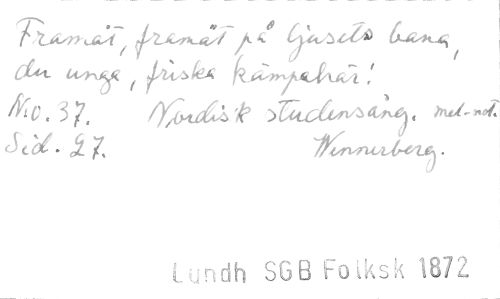 Framåt, framåt på ljusets bana,
du unga, friska kämpahär!
No. 37. Nordisk studensång. mel.-not.
Sid. 27. Wennerberg.
Lundh SGB Folksk 1872